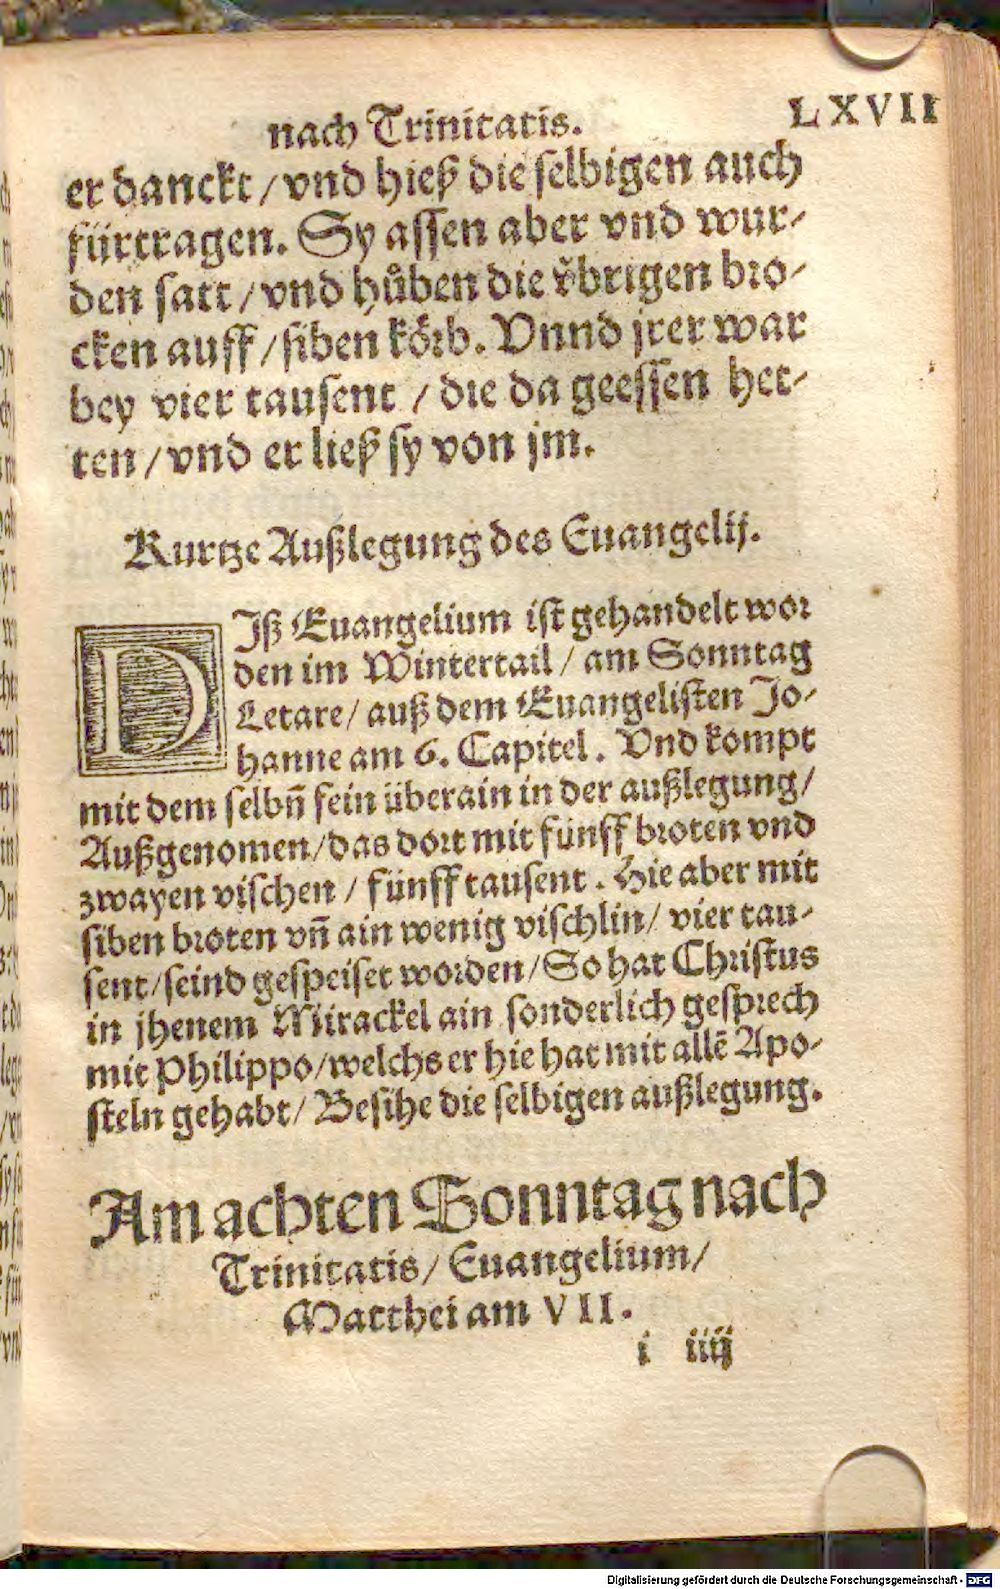 nach Trinitatis. LXVII
er danckt / vnd hieß die selbigen auch
fürtragen. Sy assen aber vnd wur-
den satt / vnd hůben die vͤbrigen bro-
cken auff / siben koͤrb. Vnnd jrer war
bey vier tausent / die da geessen het-
ten / vnd er ließ sy von jm.
Kurtze Außlegung des Euangelij.
DIß Euangelium ist gehandelt wor
den im Wintertail / am Sonntag
Letare / auß dem Euangelisten Jo-
hanne am 6. Capitel. Vnd kompt
mit dem selbñ fein überain in der außlegung /
Außgenomen / das dort mit fünff broten vnd
zwayen vischen / fünff tausent. Hie aber mit
siben broten vñ ain wenig vischlin / vier tau-
sent / seind gespeiset worden / So hat Christus
in jhenem Mirackel ain sonderlich gesprech
mit Philippo / welchs er hie hat mit allẽ Apo-
steln gehabt / Besihe die selbigen außlegung.
Am achten Sonntag nach
Trinitatis / Euangelium /
Matthei am VII.
i iiij
Digitalisierung gefördert durch die Deutsche Forschungsgemeinschaft - DFG